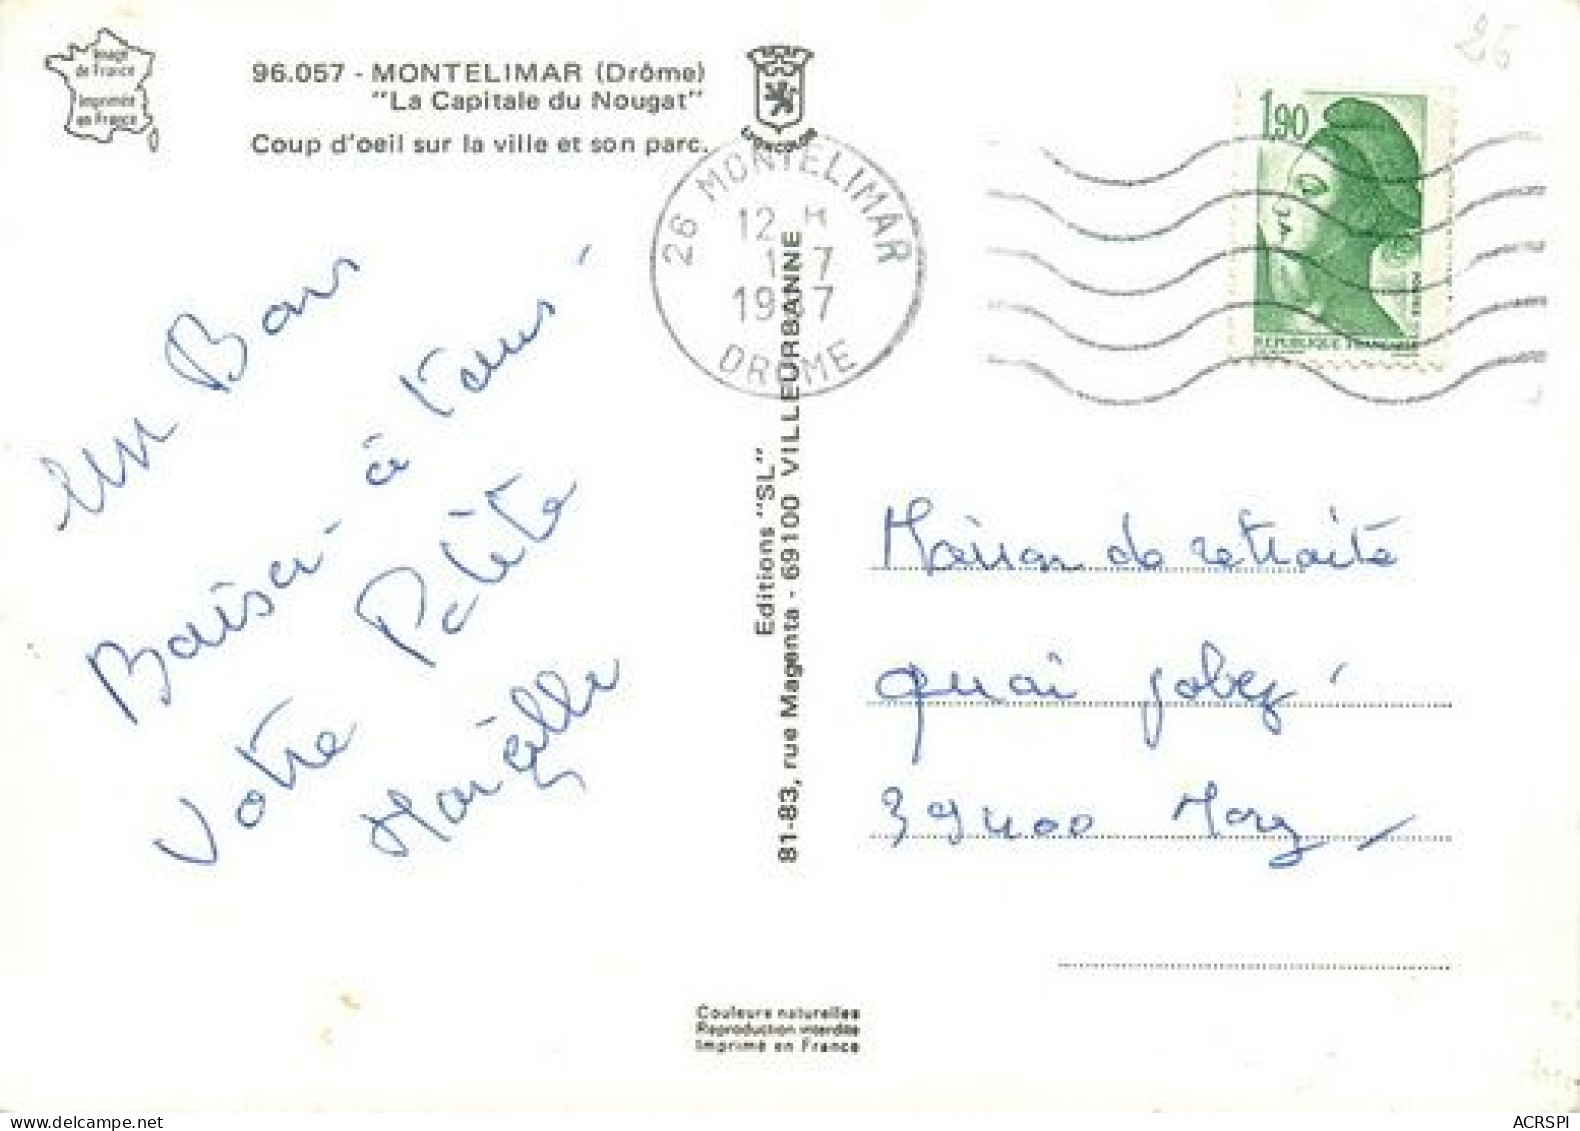 Image
de France
Imprimée
en France
96.057 - MONTELIMAR (Drôme)
"La Capitale du Nougat"
Coup d'oeil sur la ville et son parc.
LYONCOLOR
26 MONTELIMAR
12 H
1 7
19 7
DROME
1,90
REPUBLIQUE FRANÇAISE
25
un Bon
Baiser à tous
Votre Petite
Editions "SL"
81-83, rue Magenta - 69100 VILLEURBANNE
Maison de retraite
quai Jobez
39400 Morez
Couleurs naturelles
Reproduction interdite
Imprimé en France
ACRSPI